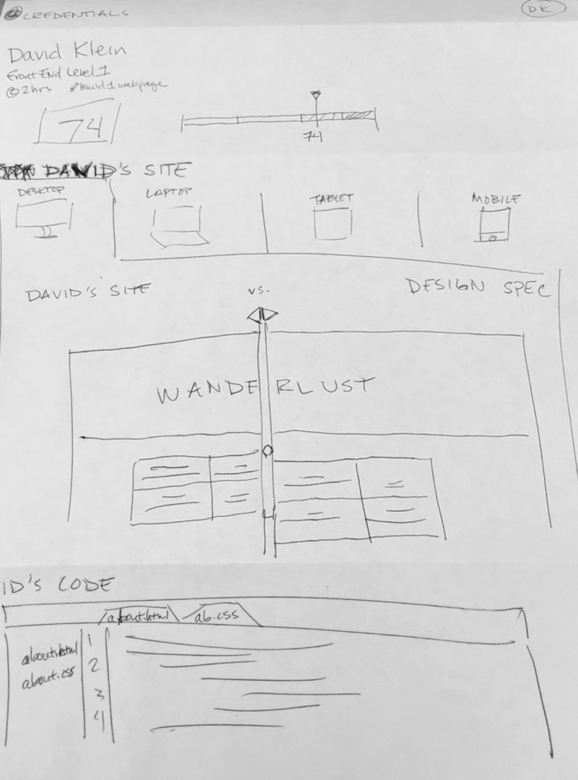 @CREDENTIALS
DK
David Klein
Front End Level 1
@2hrs #build1webpage
74
74
DAVID'S SITE
DESKTOP
LAPTOP
TABLET
MOBILE
DAVID'S SITE
vs.
DESIGN SPEC
WANDERLUST
ID'S CODE
about.html
ab.css
about.html
about.css
1
2
3
4